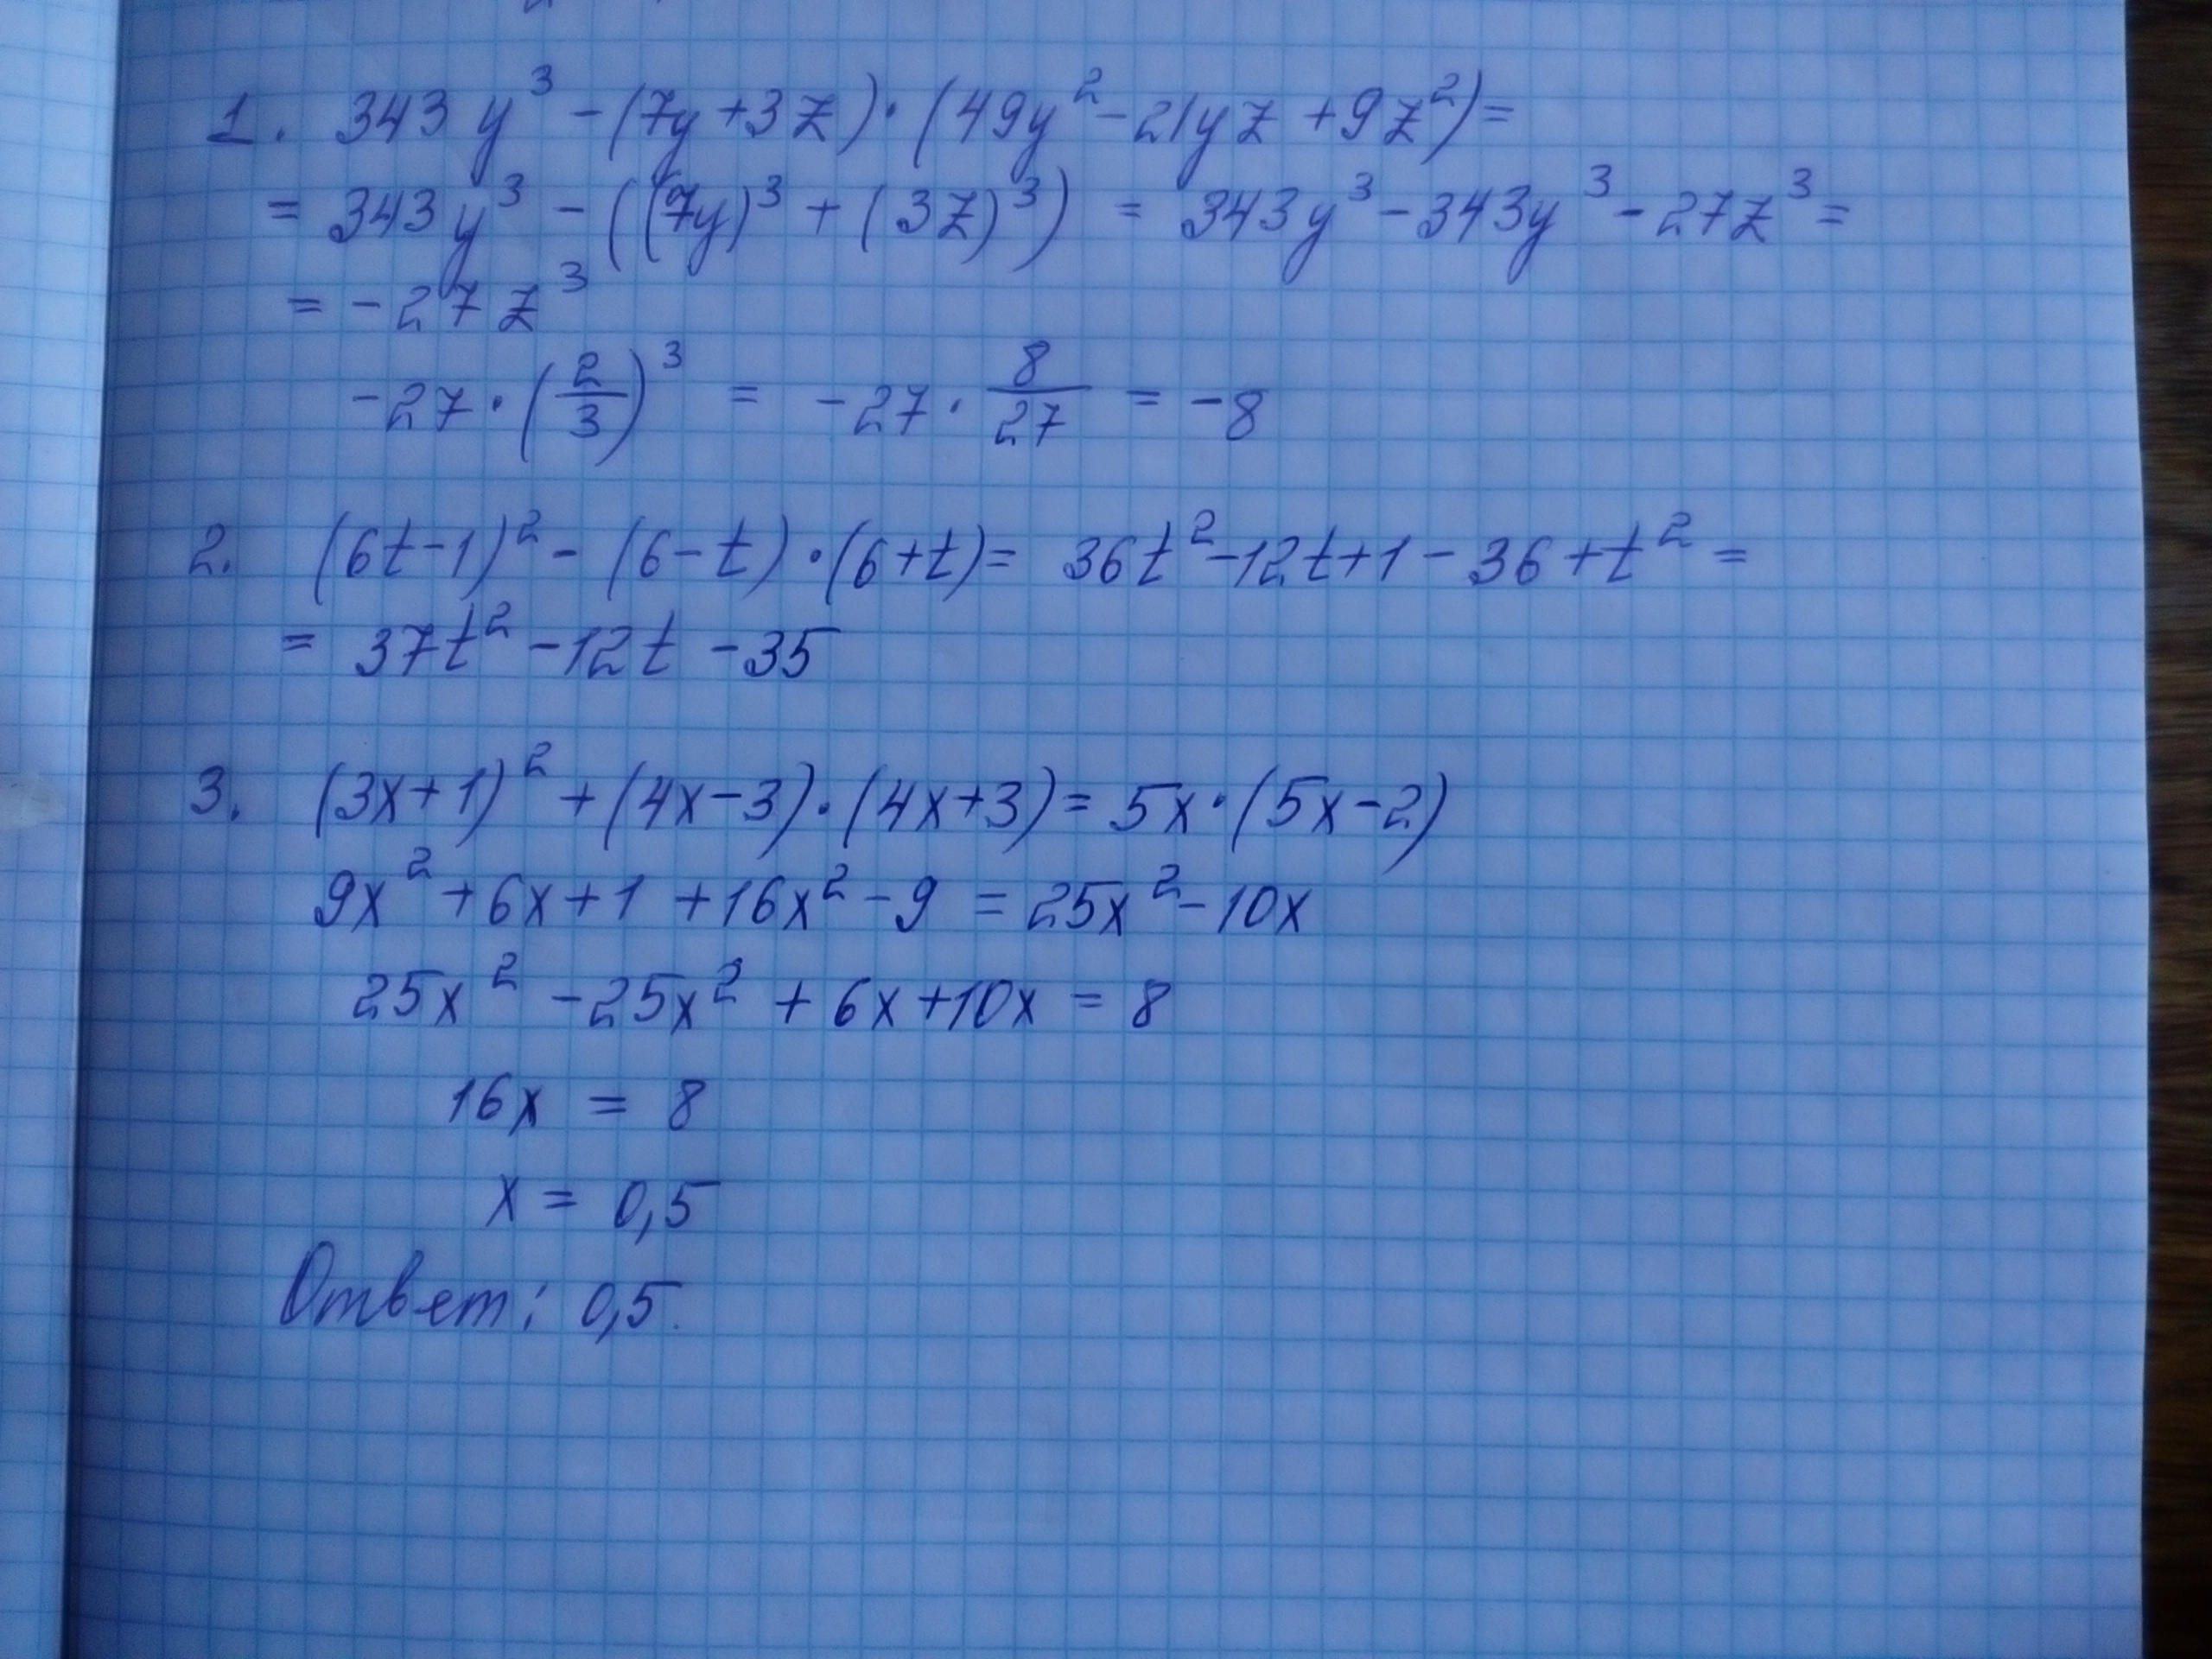 1. 343y³ - (7y+3z)·(49y²-21yz+9z²)=
= 343y³ - ((7y)³ + (3z)³) = 343y³-343y³-27z³=
= -27z³
-27·(2/3)³ = -27·8/27 = -8
2. (6t-1)² - (6-t)·(6+t)= 36t²-12t+1-36+t² =
= 37t²-12t-35
3. (3x+1)² + (4x-3)·(4x+3)= 5x·(5x-2)
9x²+6x+1+16x²-9 = 25x²-10x
25x² -25x² + 6x+10x = 8
16x = 8
x = 0,5
Ответ: 0,5.